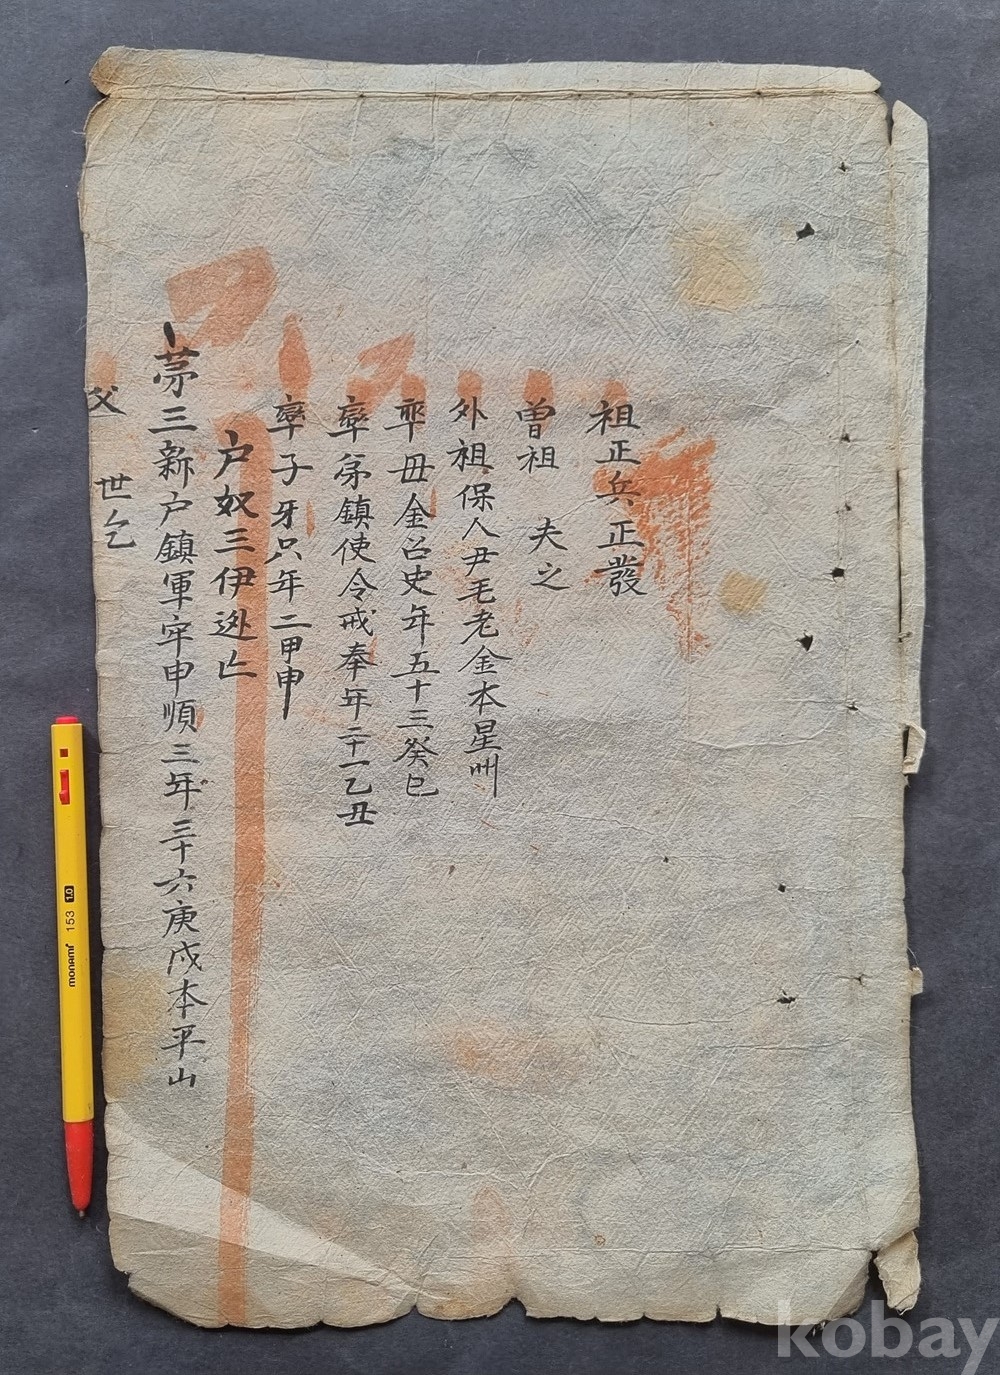 祖正兵正發
曽祖 夫之
外祖保人尹毛老金本星州
率母金召史年五十三癸巳
率弟鎮使令戒奉年二十一乙丑
率子牙只年二甲申
户奴三伊逃亡
第三新户鎮軍牢申順三年三十六庚戌本平山
父 世乞
monami 153 1.0
kobay